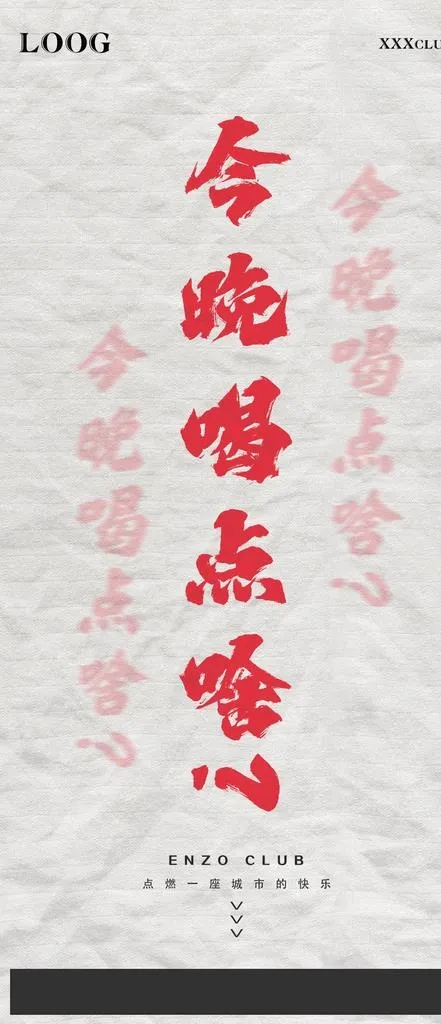 LOOG
XXXCLU
今晚喝点啥?
今晚喝点啥?
今晚喝点啥?
ENZO CLUB
点燃一座城市的快乐